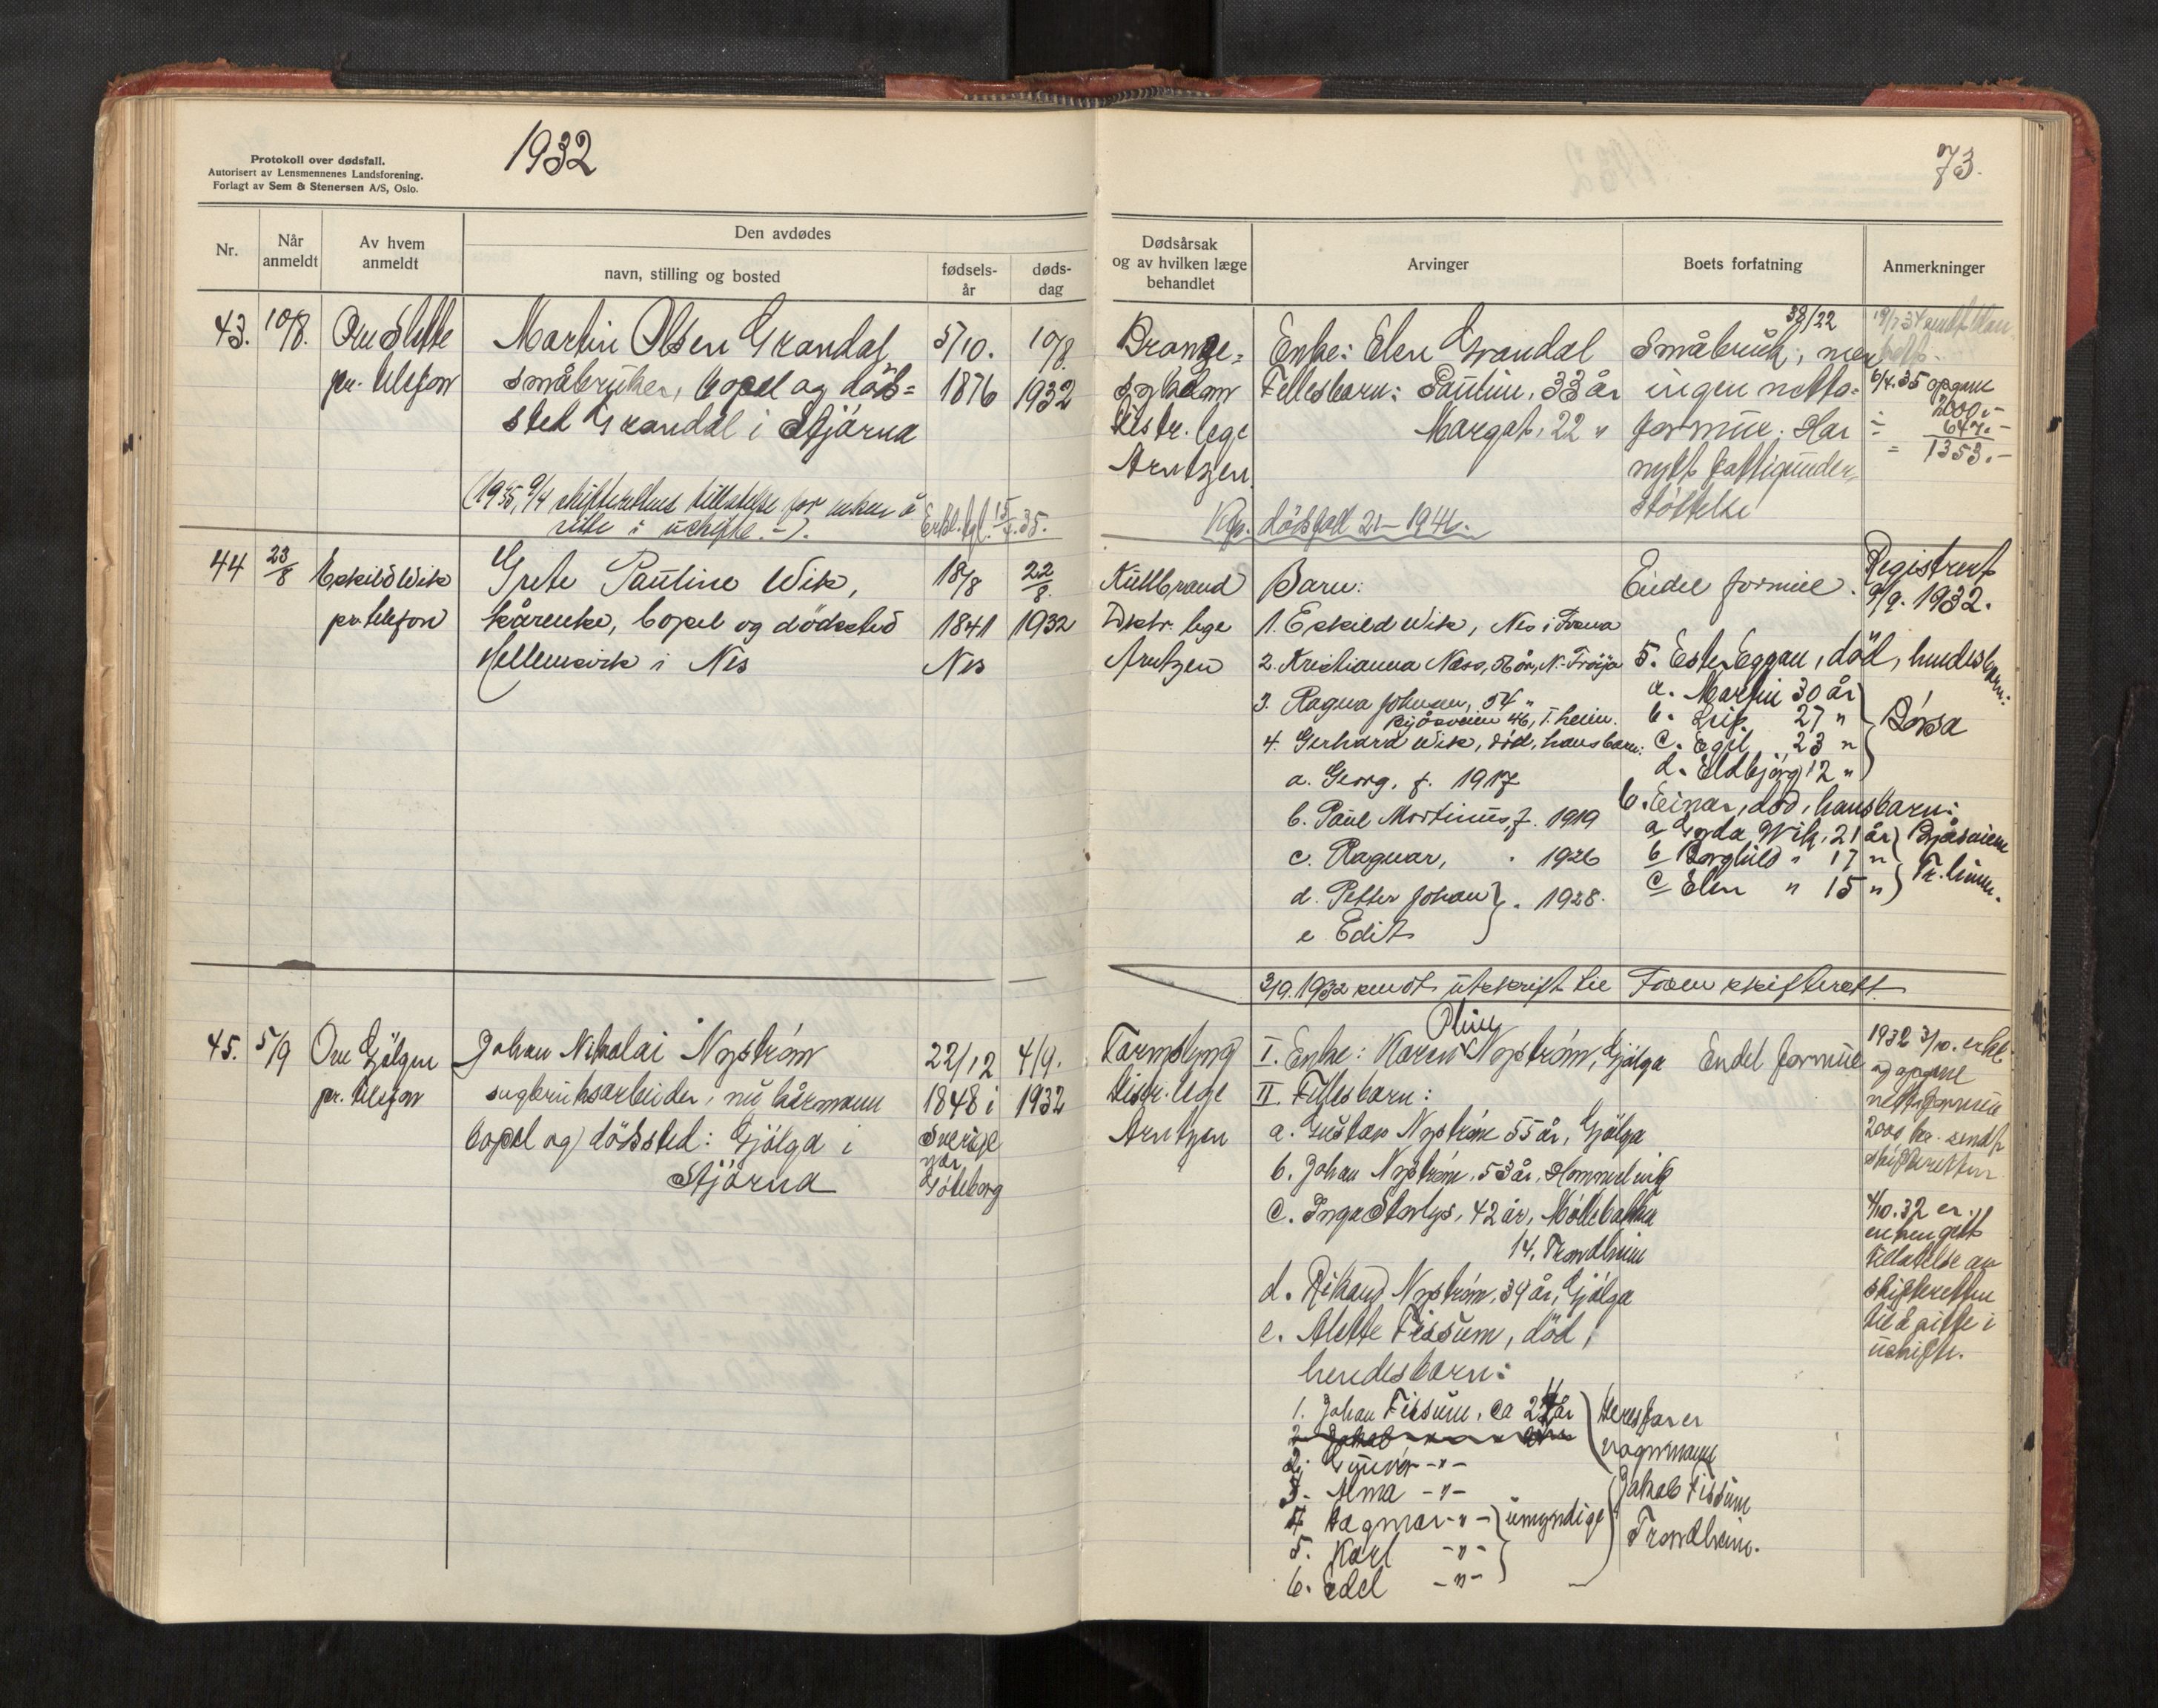 Protokoll over dødsfall.
Autorisert av Lensmennenes Landsforening.
Forlagt av Sem & Stenersen A/S, Oslo.
1932
Nr.
Når anmeldt
Av hvem anmeldt
Den avdødes
navn, stilling og bosted
fødsels-år
døds-dag
43. 10/8. Ove Slette Martin Olsen Grandal 5/10. 10/8.
pr. telefon småbruker, bopel og døds= 1876 1932
sted Grandal i Stjørna
(1935, 9/4 skifterettens tillatelse for enken å
sitte i uskifte.-).
15/4.35.
44 23/8 Eskild Wik Grete Pauline Wik, 18/8 22/8.
pr. telefon kårenke, bopel og dødssted 1841 1932
Hellemsvik i Nes Nes
45. 5/9 Ove Gjölgen Johan Nikolai Nyström 22/12 4/9.
pr. telefon sagbruksarbeider, nu kårmann 1848 i 1932
bopel og dödssted: Gjölga i Sverige
Stjörna nær
Göteborg
73.
Dødsårsak
og av hvilken læge
behandlet
Arvinger
Boets forfatning
Anmerkninger
38/22
Enke: Elen Grandal Småbruk, men
Fellesbarn: Pauline, 33 år ingen netto= 6/4.35 opgave
Distr. lege Margot, 22 " formue. Har 2000.-
Arntzen. nytt fattigunder, ÷ 647.-
støttelse = 1353.-
dödsfall 21-1941.
Kullbrand Barn: Endel formue. Registrert
9/9. 1932.
Distr. lege 1. Eskild Wik, Nes i Fosna
Arntzen 2. Kristianna Næss, 56 år, N.-Fröya
3. Ragna Johnsen, 54 "
Byåsveien 46, T.heim.
4. Gerhard Wik, död, hans barn:
a. Georg, f. 1917
b. Paul Martinus, f. 1919
c. Ragnar, " 1926
d. Petter Johan } " 1928.
e Edit
5. Ester Eggan, död, hendes barn:
a. Martin 30 år
b. Leif 27 "
c. Egil, 23 "
d. Eldbjörg 12 "
Börsa
6. Einar, död, hans barn:
a Gyda Wik, 21 år
b Borghild " 17 "
c Elen " 15 "
Byåsveien
Tr.heim.
3/9.1932 sendt utskrift til Fosen skifterett.
Oline
Tarmslyng I. Enke: Karen Nyström, Gjölga Endel formue
Distr. lege II. Fellesbarn:
Arntzen a. Gustav Nyström 55 år, Gjölga
b. Johan Nyström, 53 år, Hommelvik
c. Inga Storlys, 42 år, Möllebakken
14, Trondheim
d. Rikard Nyström, 39 år, Gjölga
e. Alette Fissum, död,
hendes barn:
1. Johan Fissum, ca 24 år
2. Gunvor -"-
3. Alma -"-
4 Dagmar -"- } umyndige
5. Karl -"-
6. Edel -"-
Deres far er
vognmann
Jakob Fissum
Trondheim.
1932 3/10. erkl.
og opgave
nettoformue
2000 kr. sendt
skifteretten
4/10.32 er
enken gitt
tillatelse av
skifteretten
til å sitte i
uskifte.